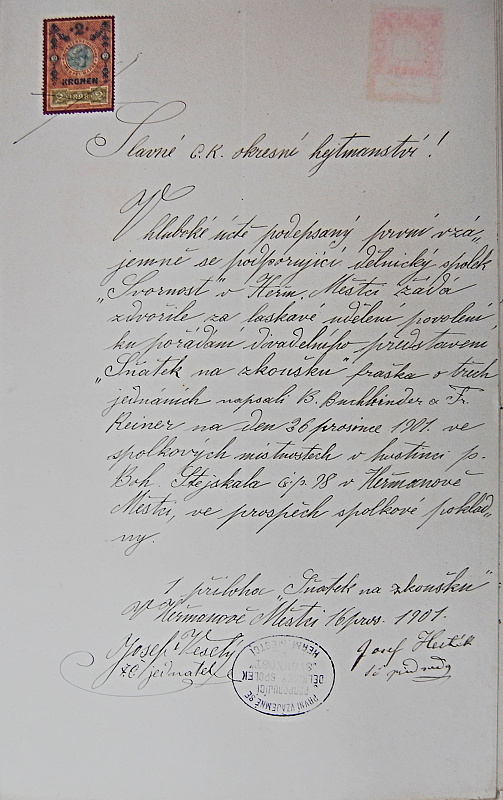 2
KRONEN
2 1898 2
Slavné c. k. okresní hejtmanství!
V hluboké úctě podepsaný první vzá„
jemně se podporující dělnický spolek
„Svornost" v Heřm. Městci žádá
zdvořile za laskavé udělení povolení
ku pořádání divadelního představení
„Sňatek na zkoušku" fraška o třech
jednáních napsali B. Buchbinder a Fr.
Reiner na den 26 prosince 1901. ve
spolkových místnostech v hostinci p.
Boh. Stejskala č/p. 98 v Heřmanově
Městci, ve prospěch spolkové poklad„
ny.
1 příloha „Sňatek na zkoušku"
V Heřmanově Městci 16 pros. 1901.
Josef Veselý
t. č. jednatel
PRVNÍ VZÁJEMNĚ SE
PODPORUJÍCÍ
DĚLNICKÝ SPOLEK
„SVORNOST"
HEŘM. MĚSTCI
Josef